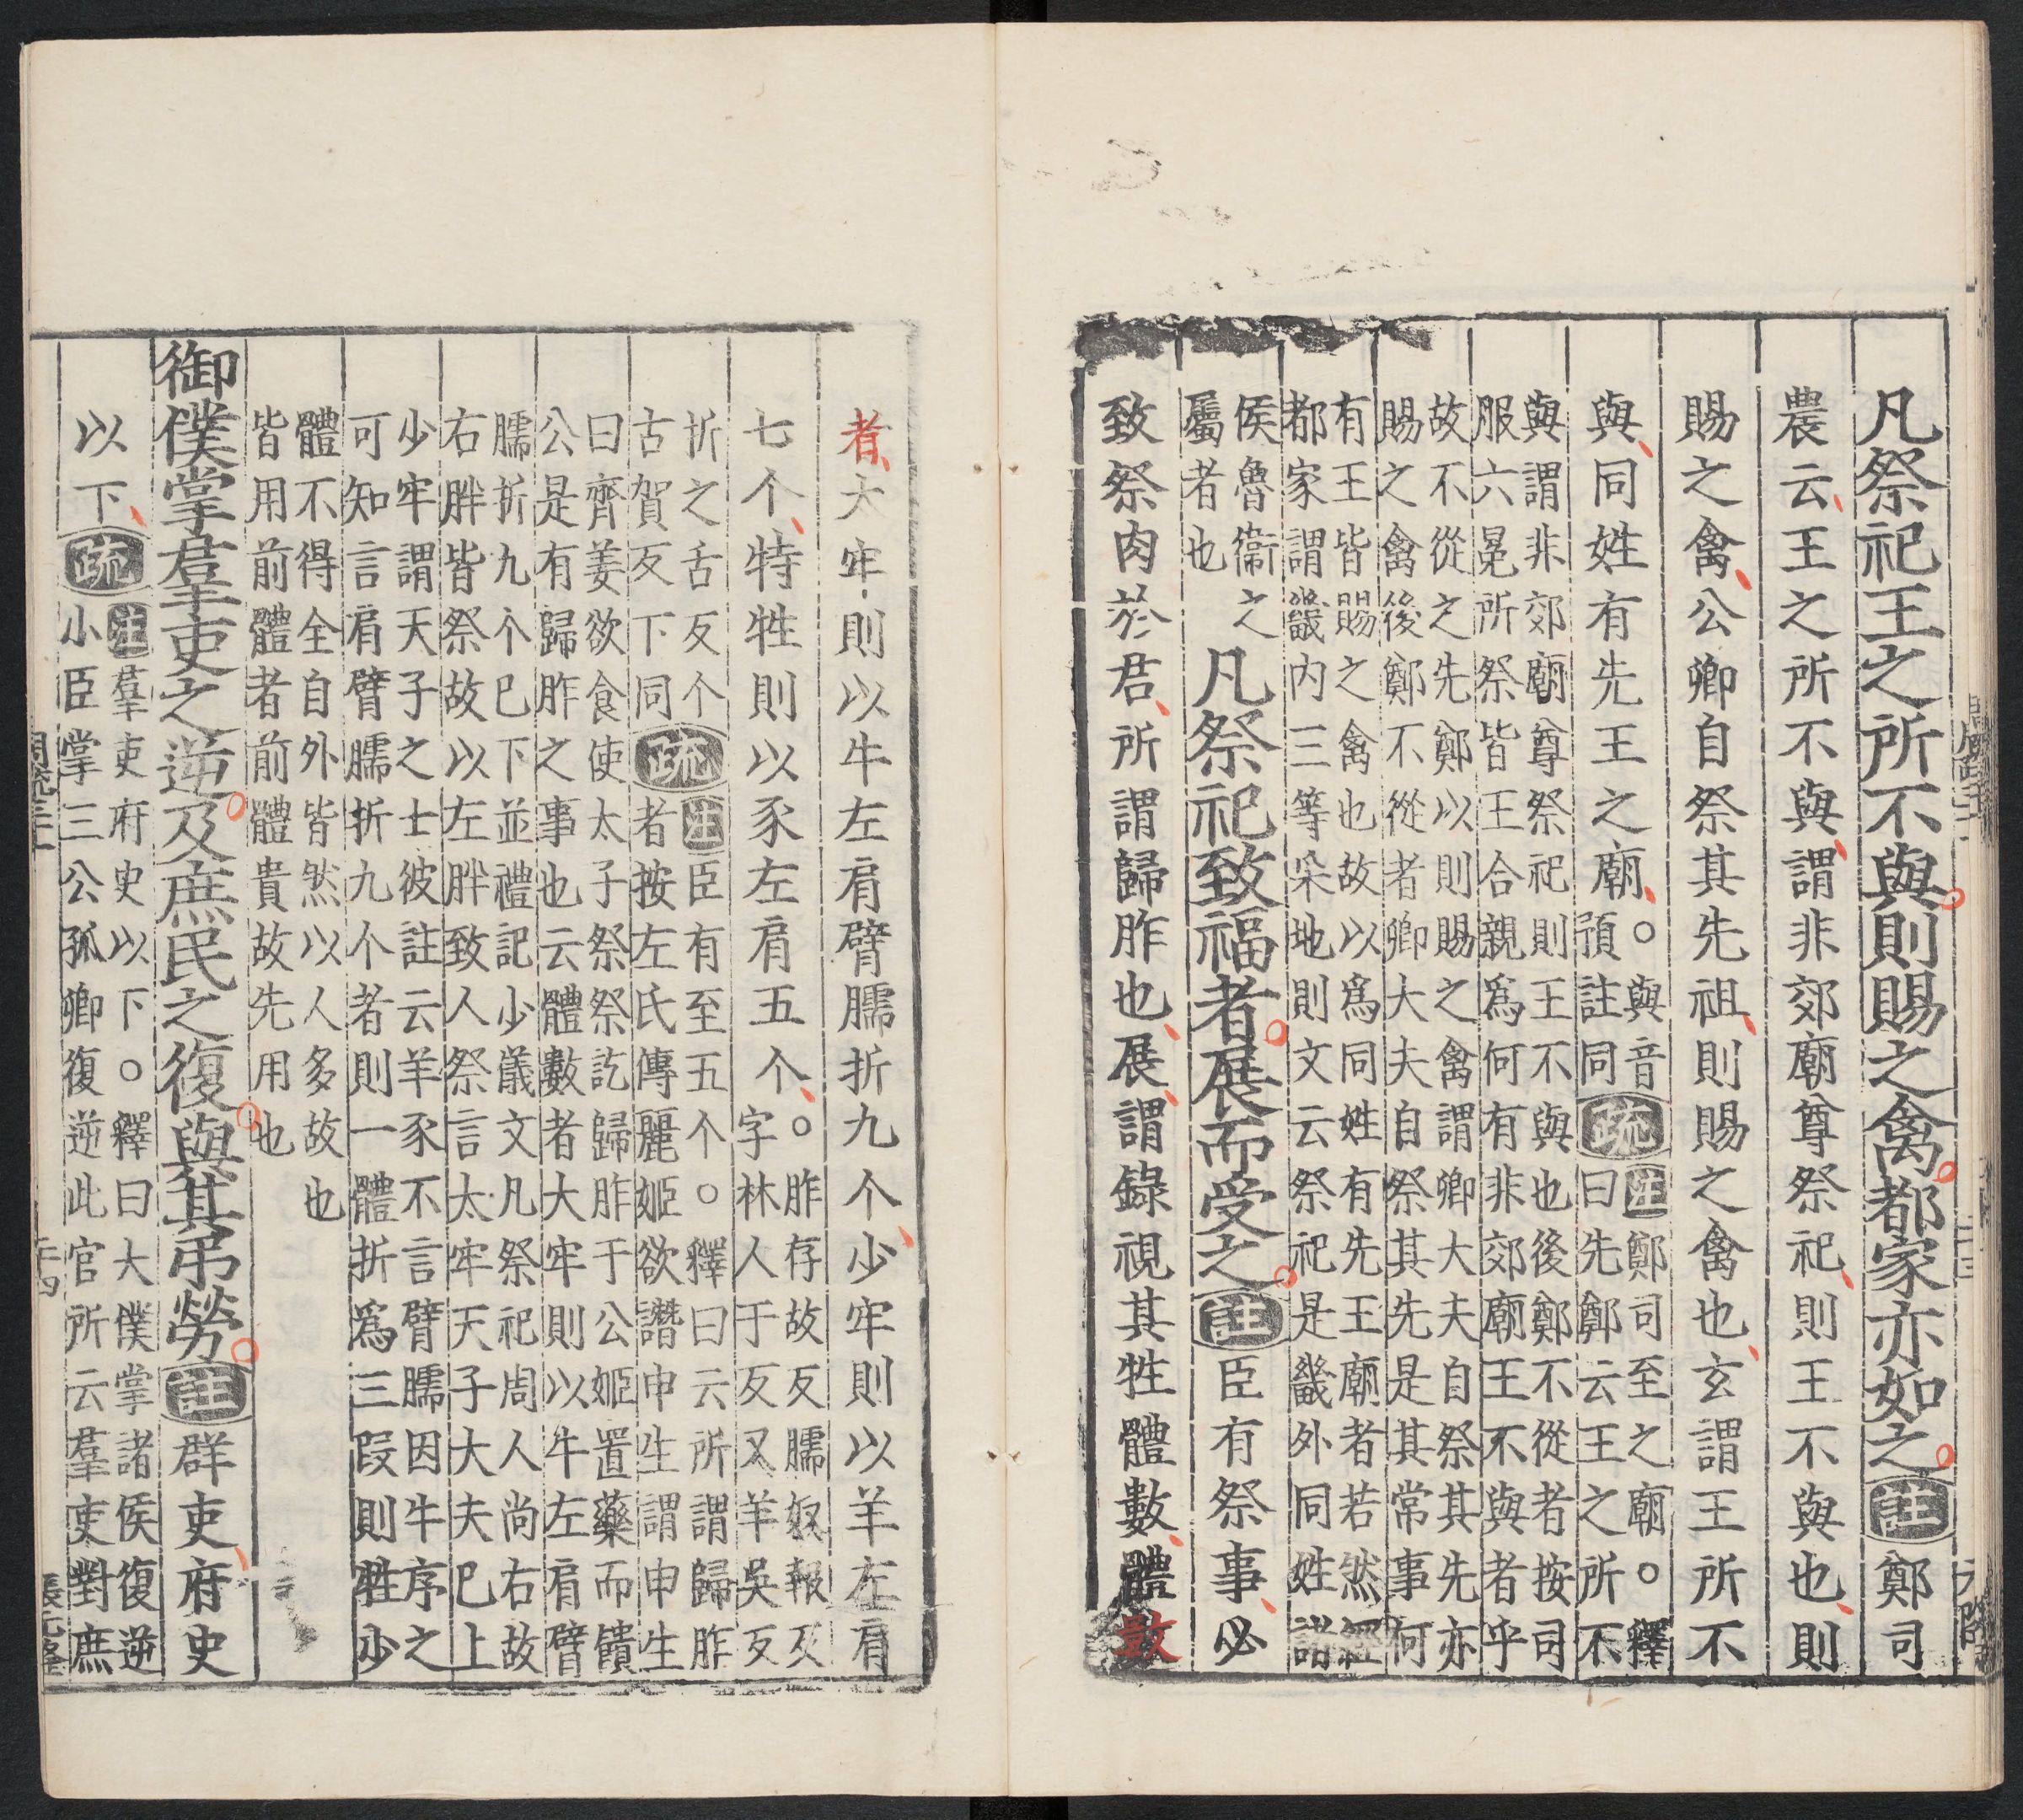 凡祭祀王之所不與則賜之禽都家亦如之註鄭司
農云王之所不與謂非郊廟尊祭祀則王不與也則
賜之禽公卿自祭其先祖則賜之禽也玄謂王所不
與同姓有先王之廟○
與音
預註同
疏
注鄭司至之廟○釋
曰先鄭云王之所不
與謂非郊廟尊祭祀則王不與也後鄭不從者按司
服六冕所祭皆王合親為何有非郊廟王不與者乎
故不從之先鄭以則賜之禽謂卿大夫自祭其先亦
賜之禽後鄭不從者卿大夫自祭其先是其常事何
有王皆賜之禽也故以為同姓有先王廟者若然經
都家謂畿內三等采地則文云祭祀是畿外同姓諸
侯魯衞之
屬者也
凡祭祀致福者展而受之註臣有祭事必
致祭肉於君所謂歸胙也展謂錄視其牲體數體數
者大牢則以牛左肩臂臑折九个少牢則以羊左肩
七个特牲則以豕左肩五个○
胙存故反臑奴報反
字林人于反又羊吳反
折之舌反个
古賀反下同
疏
注臣有至五个○釋曰云所謂歸胙
者按左氏傳麗姬欲譖申生謂申生
曰齊姜欲食使太子祭祭訖歸胙于公姬置藥而饋
公是有歸胙之事也云體數者大牢則以牛左肩臂
臑折九个巳下並禮記少儀文凡祭祀周人尚右故
右胖皆祭故以左胖致人祭言太牢天子大夫巳上
少牢謂天子之士彼註云羊豕不言臂臑因牛序之
可知言肩臂臑折九个者則一體折為三段則牲少
體不得全自外皆然以人多故也
皆用前體者前體貴故先用也
御僕掌羣吏之逆及庶民之復與其弔勞註群吏府史
以下疏
注羣吏府史以下○釋曰大僕掌諸侯復逆
小臣掌三公孤卿復逆此官所云羣吏對庶
周疏三十一
三十四